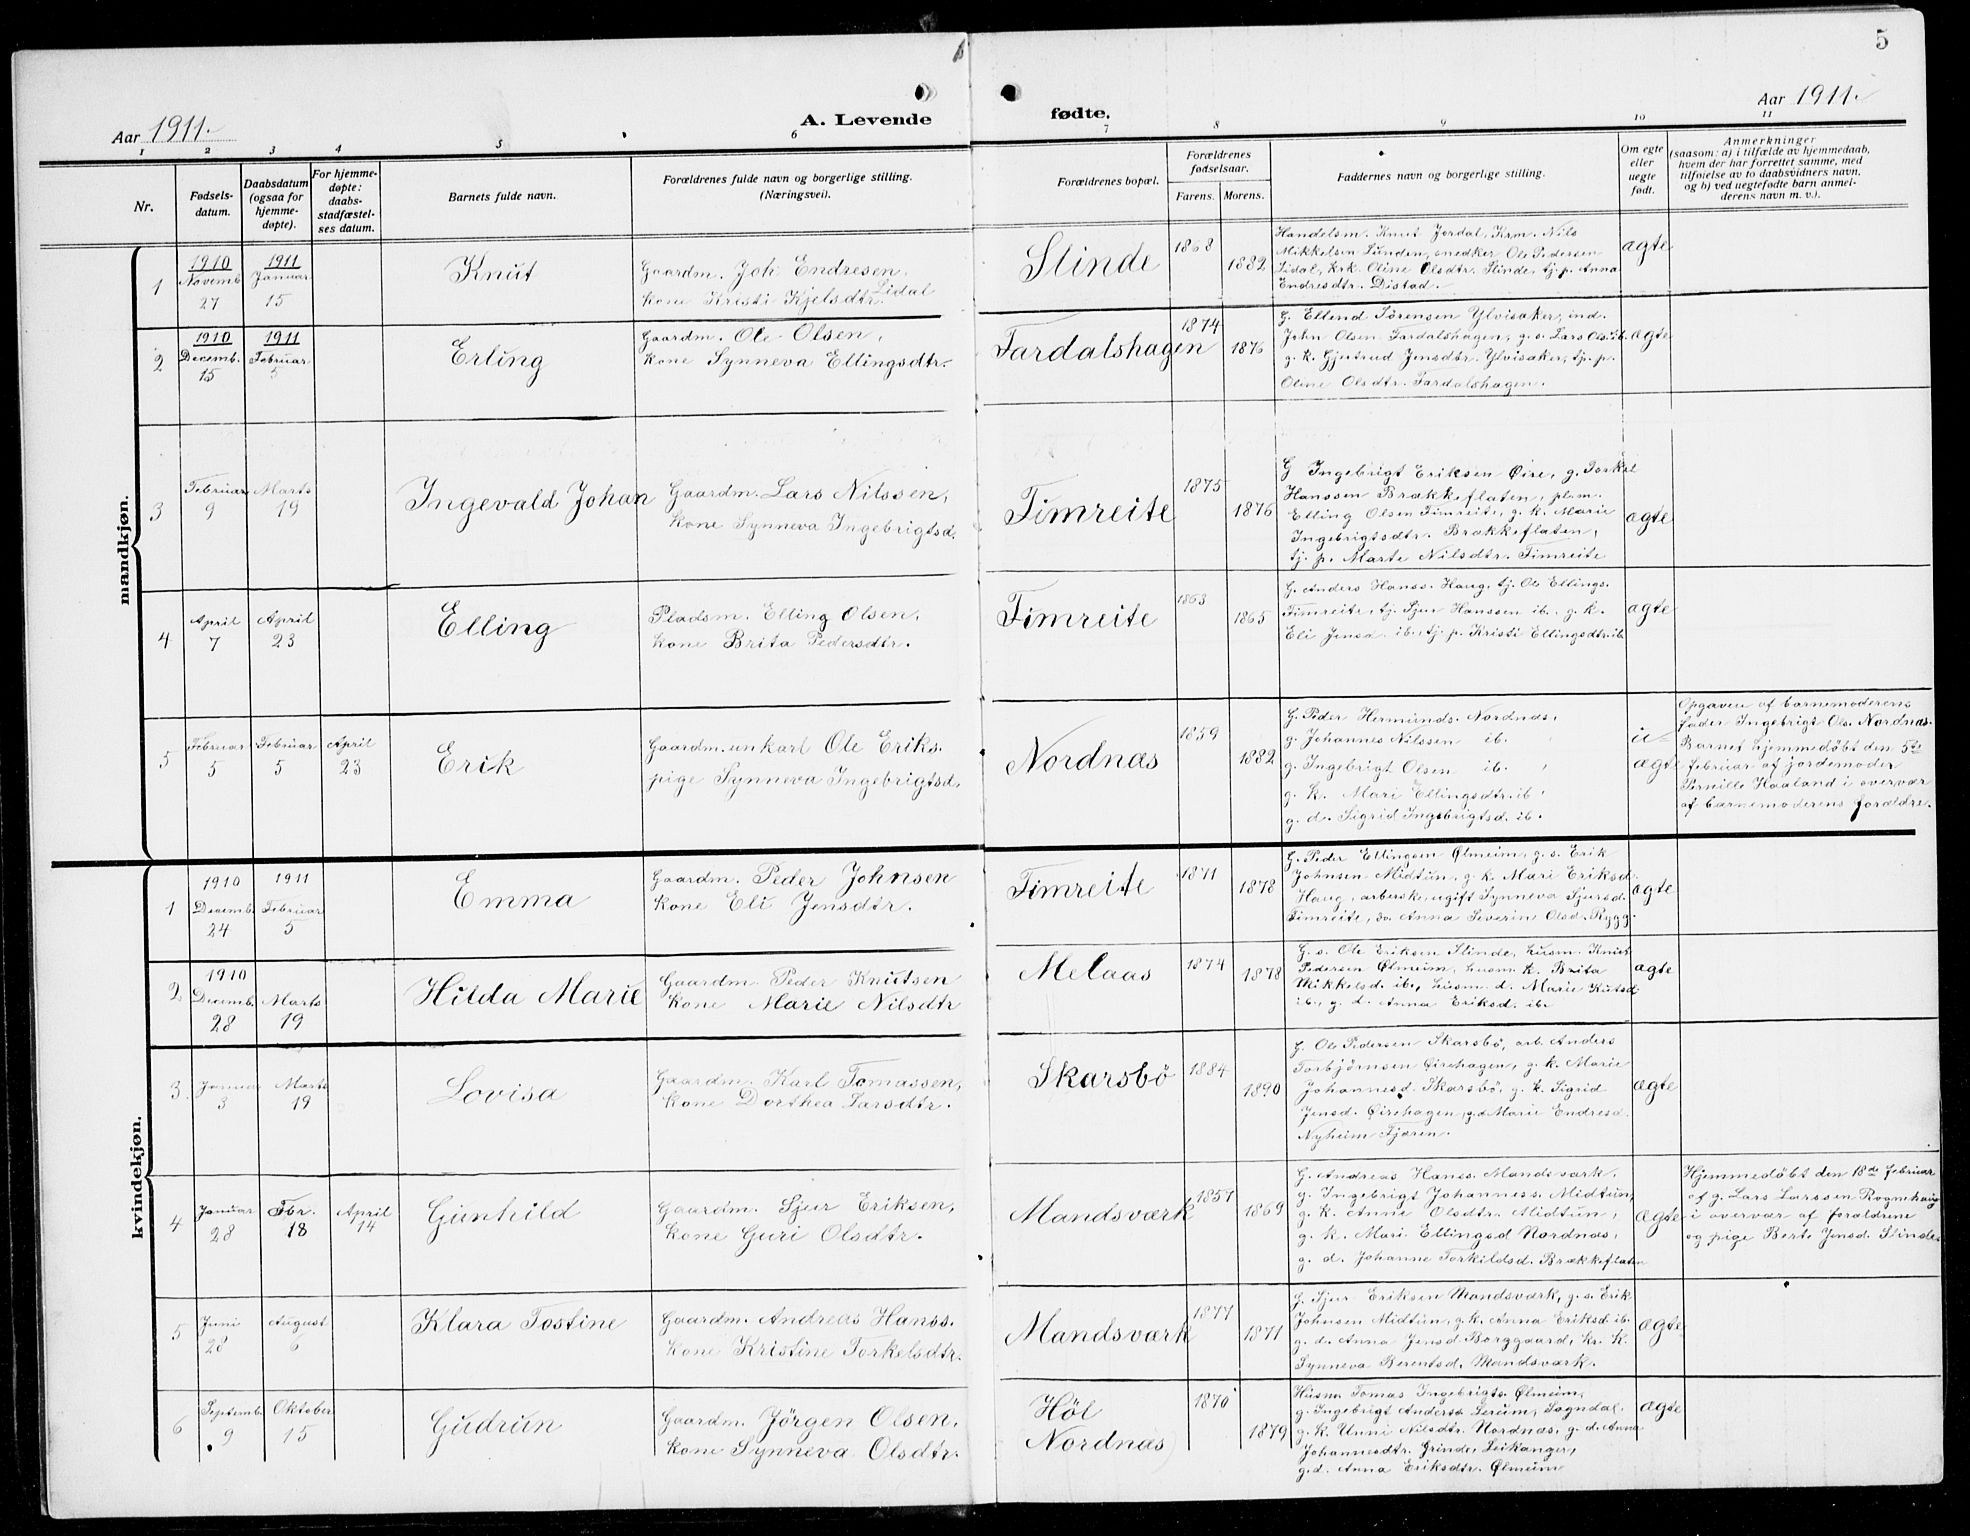 5
Aar 1911.
A. Levende
fødte.
Aar 1911.
1 2 3 4 5 6 7 8 9 10 11
Nr.
Fødsels-
datum.
Daabsdatum
(ogsaa for
hjemme-
døpte).
For hjemme-
døpte:
daabs-
stadfæstel-
ses datum.
Barnets fulde navn.
Forældrenes fulde navn og borgerlige stilling.
(Næringsvei).
Forældrenes bopæl.
Forældrenes
fødselsaar.
Farens. Morens.
Faddernes navn og borgerlige stilling.
Om egte
eller
uegte
født.
Anmerkninger
(saasom: a) i tilfælde av hjemmedaab,
hvem der har forrettet samme, med
tilføielse av to daabsvidners navn,
og b) ved uegtefødte barn anmel-
derens navn m. v.).
mandkjøn.
1
1910
Novemb.
27
1911
Januar
15
Knut
Gaardm. Joh Endresen
Lidal
kone Kristi Kjelsdtr.
Slinde
1868
1882
Handelsm. Knut Jordal, Krm. Nils
Mikkelsen Lunden, snedker Ole Pedersen
Lidal, krk. Oline Olsdtr. Slinde, tj. p. Anna
Endresdtr. Distad.
ægte
2
1910
Decemb.
15
1911
Februar
5
Erling
Gaardm. Ole Olsen,
kone Synneva Ellingsdtr.
Fardalshagen
1874
1876
G. Ellend Sørensen Ylvisaker, ind.
John Olsen Fardalshagen, g. s. Lars Ols. ib.
g. k. Gjertrud Jensdtr. Ylvisaker, tj. p.
Oline Olsdtr. Fardalshagen.
ægte
3
Februar
9
Marts
19
Ingevald Johan
Gaardm. Lars Nilssen,
kone Synneva Ingebrigtsd.
Timreite
1875
1876
G Ingebrigt Eriksen Øire, g. Torkel
Hanssen Brækkeflaten, pl.m.
Elling Olsen Timreite, g. k. Marie
Ingebrigtsdtr. Brækkeflaten,
tj. p. Marte Nilsdtr. Timreite
ægte
4
April
7
April
23
Elling
Pladsm. Elling Olsen,
kone Brita Pedersdtr.
Timreite
1863
1865
G. Anders Hanss. Haug, tj. Ole Ellings.
Timreite, tj. Sjur Hanssen ib., g. k.
Eli Jensd. ib., tj. p. Kristi Ellingsdtr. ib
ægte
5
Februar
5
Februar
5
April
23
Erik
Gaardm. unkarl Ole Eriks.
pige Synneva Ingebrigtsd.
Nordnæs
1859
1882
G. Peder Hermunds. Nordnæs,
g. Johannes Nilssen ib.
g. Ingebrigt Olsen ib.
g. k. Mari Ellingsdtr. ib.
g. d. Sigrid Ingebrigtsd. ib.
u-
ægte
Opgaven af barnemoderens
fader Ingebrigt Ols. Nordnæs.
Barnet hjemmedøbt den 5te
februar af jordemoder
Pernille Haaland i overvær
af barnemoderens forældre.
kvindekjøn.
1
1910
Decemb.
24
1911
Februar
5
Emma
Gaardm. Peder Johnsen
kone Eli Jensdtr.
Timreite
1871
1878
G. Peder Ellingsen Ølmeim, g. s. Erik
Johnsen Midtun, g. k. Mari Eriksd.
Haug, arbersk. ugift Synneva Sjursd.
Timreite, do. Anna Severine Olsd. Rygg.
ægte
2
1910
Decemb.
28
Marts
19
Hilda Marie
Gaardm. Peder Knutsen
kone Marie Nilsdtr
Melaas
1874
1878
G. s. Ole Eriksen Slinde, husm. Knut
Pedersen Ølmeim, husm. k. Brita
Mikkelsd. ib., husm. d. Marie Kutsd.
ib., g. d. Anna Eriksd. ib.
ægte
3
Januar
3
Marts
19
Lovisa
Gaardm. Karl Tomassen,
kone Dorthea Larsdtr.
Skarsbø
1884
1890
G. Ole Pedersen Skarsbø, arb. Anders
Torbjørnsen Øirehagen, g. k. Marie
Johannesd. Skarsbø, g. k. Sigrid
Jensd. Øirehagen, g.d. Marie Endresd.
Nyheim Fjæren.
ægte
4
Januar
28
Fbr.
18
April
14
Gunhild
Gaardm. Sjur Eriksen,
kone Guri Olsdtr.
Mandsværk
1857
1869
G. Andreas Hanss. Mandsværk.
g. Ingebrigt Johanness. Midtun,
g. k. Anne Olsdtr. Midtun,
g. k. Mari Ellingsd Nordnæs,
g. d. Johanne Torkildsd. Brækkeflaten
ægte
Hjemmedøbt den 18de februar
af g. Lars Larssen Rognehaug
i overvær af forældrene
og pige Berte Jensd. Slinde.
5
Juni
28
August
6
Klara Tostine
Gaardm. Andreas Hanss.
kone Kristine Torkelsdtr.
Mandsværk
1877
1871
G. Sjur Eriksen Mandsværk, g. s. Erik
Johnsen Midtun, g.k. Anna Eriksd ib.
g. d. Anna Jensd. Borggaard, kr. k.
Synneva Berentsd. Mandsværk.
ægte
6
Septemb.
9
Oktober
15
Gudrun
Gaardm. Jörgen Olsen,
kone Synneva Olsdtr.
Høl
Nordnæs
1870
1879
Husm. Tomas Ingebrigts. Ølmeim,
g. Ingebrigt Anders. Lerum, Sogndal.
g. k. Unni Nilsdtr. Nordnæs, g. d. Anna
Johannesdtr. Grinde, Leikanger,
g.d. Anna Eriksdtr. Ølmeim
ægte